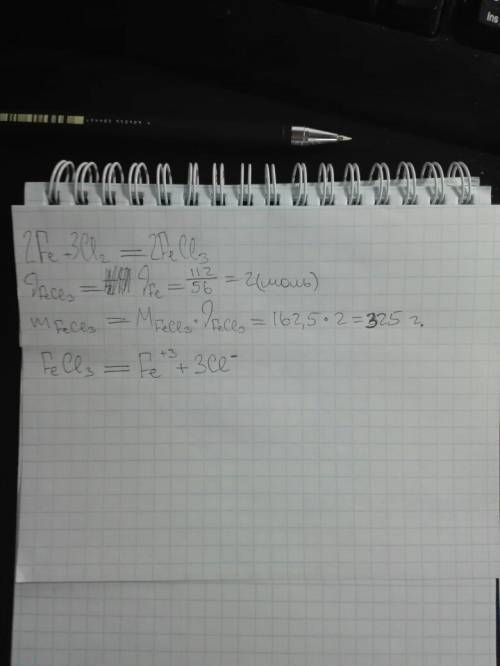 2Fe + 3Cl₂ = 2FeCl₃
ϑFeCl₃ = ϑFe = 112/56 = 2(моль)
mFeCl₃ = MFeCl₃ · ϑFeCl₃ = 162,5 · 2 = 325 г.
FeCl₃ = Fe⁺³ + 3Cl⁻
Ins